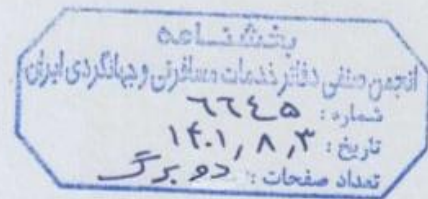 بخشنامه
انجمن صنفی دفاتر خدمات مسافرتی و جهانگردی ایران
شماره : ٦٦٤٥
تاریخ : ۱۴۰۱٫۸٫۳
تعداد صفحات : دو برگ